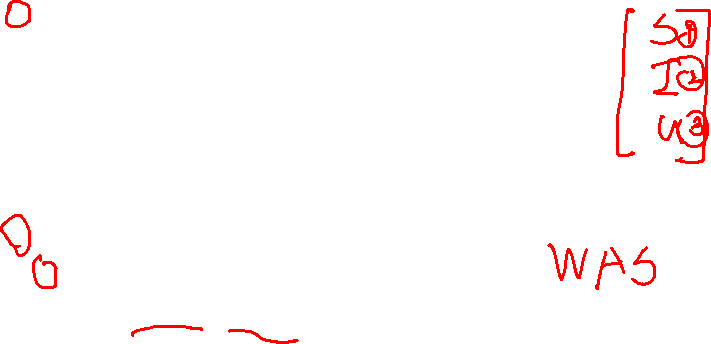 S①
I②
U③
WAS